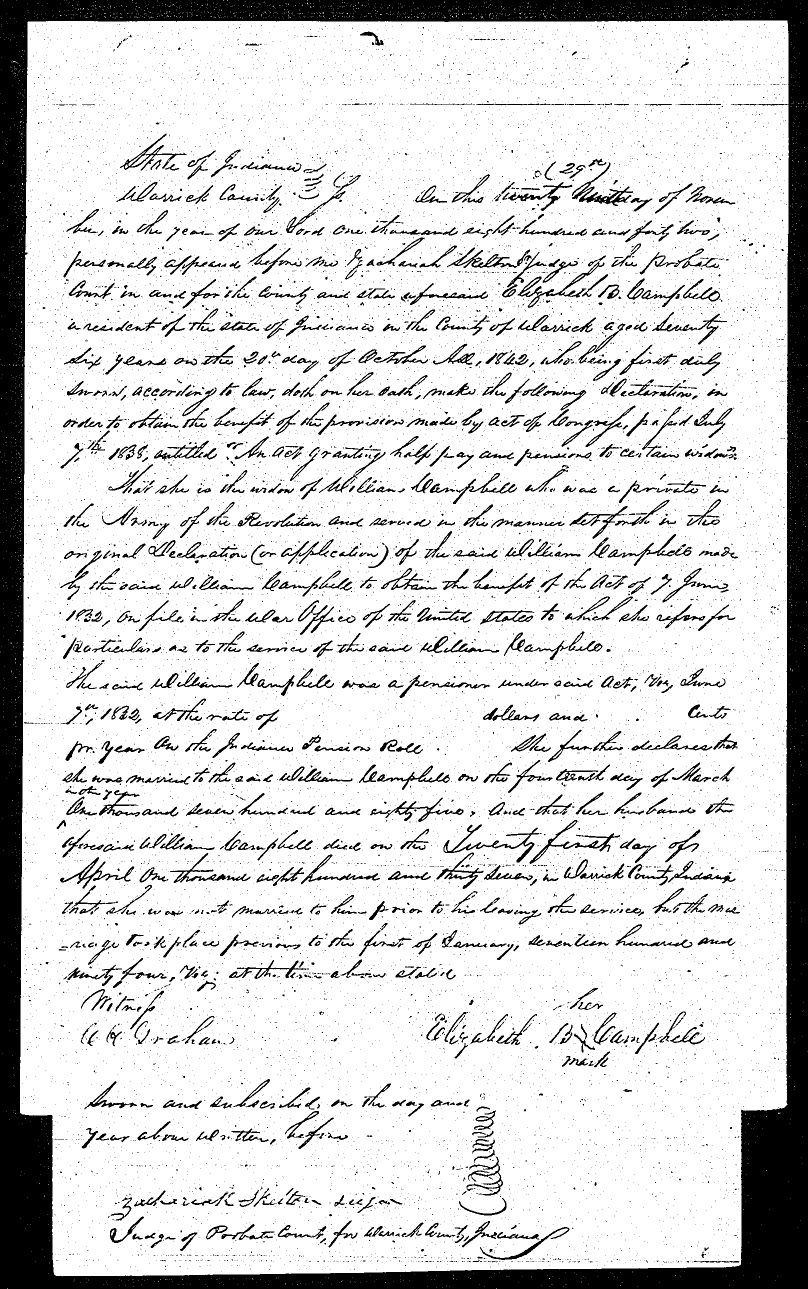 State of Indiana
(29th)
Warrick County. On this twenty Ninth day of Novem
ber, in the year of our Lord One thousand eight hundred and forty two,
personally appeared before me Zachariah Skelton Judge of the Probate
Court in and for the County and state aforesaid Elizabeth B. Campbell
a resident of the state of Indiana in the County of Warrick aged Seventy
Six years on the 20th day of October AD, 1842, who being first duly
sworn, according to law, doth on her oath, make the following Declaration, in
order to obtain the benefit of the provision made by act of Congress, passed July
7th 1838, entitled "An Act granting half pay and pensions to certain widows"
That she is the widow of William Campbell who was a private in
the Army of the Revolution and served in the manner set forth in the
original Declaration (or application) of the said William Campbell made
by the said William Campbell to obtain the benefit of the Act of 7. June,
1832, on file in the War Office of the United States to which she refers for
particulars as to the service of the said William Campbell.
The said William Campbell was a pensioner under said Act, Viz, June
7th, 1832, at the rate of dollars and cents
pr. year On the Indiana Pension Roll. She further declares that
she was married to the said William Campbell on the fourteenth day of March
in the year
One thousand seven hundred and eighty five. And that her husband the
aforesaid William Campbell died on the Twenty first day of
April One thousand eight hundred and thirty seven, in Warrick County, Indiana
that she was not married to him prior to his leaving the service, but the mar
=riage took place previous to the first of January, seventeen hundred and
ninety four, Viz; at the time above stated
Witness her
Graham Elizabeth B Campbell
mark
Sworn and subscribed, on the day and
year above written, before
Zachariah Skelton
Judge of Probate Court, for Warrick County, Indiana